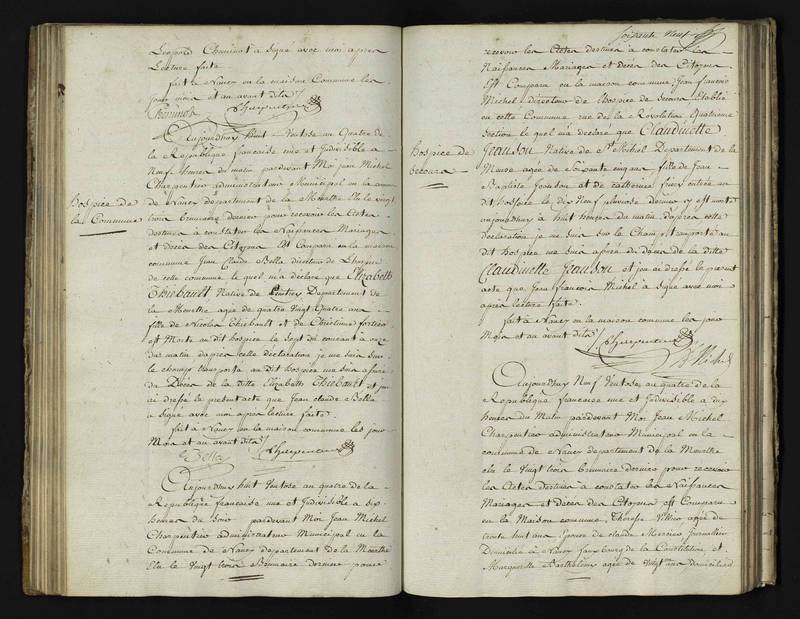 Leopold Cheminot a signé avec moi apres
Lecture faite
fait à Nancy en la maison Commune les
jour mois et an avant dits
Cheminot Charpentier
Aujourdhuy huit Ventose an Quatre de
la Republique francaise une et Indivisible a
Neuf heures du matin pardevant Moi Jean Michel
Charpentier administrateur Municipal en la commune
de Nancy departement de la Meurthe Elu le vingt
trois brumaire dernier pour recevoir les Actes
destinés a constater les Naissances Mariages
et décès des Citoyens Est Comparu en la maison
commune Jean Claude Bolle directeur de L'hospice
de cette commune le quel m'a déclaré que Elizabeth
Thiebault Native de Departement de
la Meurthe agée de quatre Vingt Quatre ans
fille de Nicolas Thiebault et de Christinne
est Morte au dit hospice le Sept du courant à onze
du matin dapres cette déclaration je me suis sur
le champ transporté au dit hospice me suis assuré
du Décès de la ditte Elizabeth Thiebault et j'en
ai dressé le present acte que Jean claude Bolle
a signé avec moi apres lecture faite.
fait à Nancy en la maison commune les jour
Mois et an avant dits
Bolle Charpentier
Aujourdhuy huit Ventose an quatre de la
Republique francaise une et Indivisible a six
heures du Soir pardevant Moi Jean Michel
Charpentier administrateur Municipal en la
Commune de Nancy departement de la Meurthe
Elu le Vingt trois Brumaire dernier pour
Hospice de
la Commune
Soixante Neuf
recevoir les Actes destinés a constater les
Naissances Mariages et décès des Citoyens
Est Comparu en la maison commune Jean francois
Michel directeur de l'hospice de Secours Etabli
en cette Commune rue de la Révolution Quatrieme
Section le quel m'a déclaré que Claudinette
Jeanson Native de St Mihiel Departement de la
Meuse agée de Soixante cinq ans, fille de Jean
Baptiste Jeanson et de catherine entrée au
dit hospice le dix Neuf pluviose dernier y est morte
aujourdhuy à huit heures du matin dapres cette
déclaration je me suis sur le Champ transporté au
dit hospice me suis assuré du décès de la ditte
Claudinette Jeanson et j'en ai dressé le present
acte que Jean francois Michel a signé avec moi
apres lecture faite.
fait à Nancy en la maison commune les jour
Mois et an avant dits Charpentier
Michel
Aujourdhuy Neuf Ventose an quatre de la
Republique francaise une et Indivisible a dix
heures du Matin pardevant Moi Jean Michel
Charpentier administrateur Municipal en la
commune de Nancy departement de la Meurthe
elu le Vingt trois brumaire dernier pour recevoir
les Actes destinés a constater les Naissances
Mariages et décès des Citoyens est Comparu
en la Maison commune Thérèse agée de
trente huit ans Epouse de claude Mercier Journalier
Domicilié a Nancy faubourg de la Constitution, et
Margueritte Barthelemy agée de Vingt ans domiciliée
Hospice de
Secours